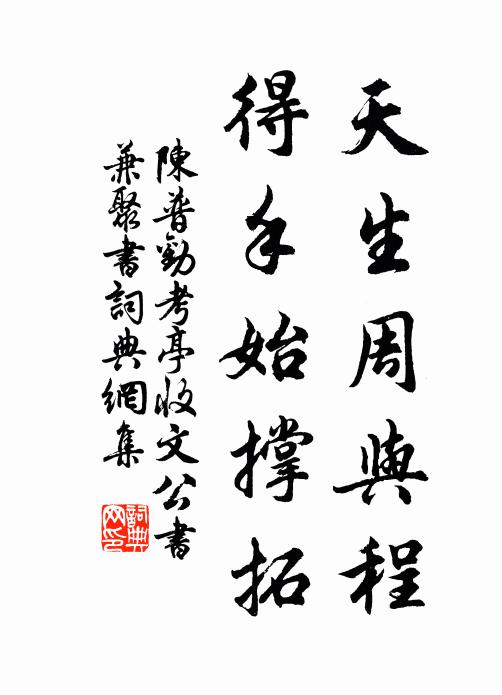 天生周與程
得手始撐拓
陳普勸考亭收文公書
兼聚書詞典網集
詞典网印